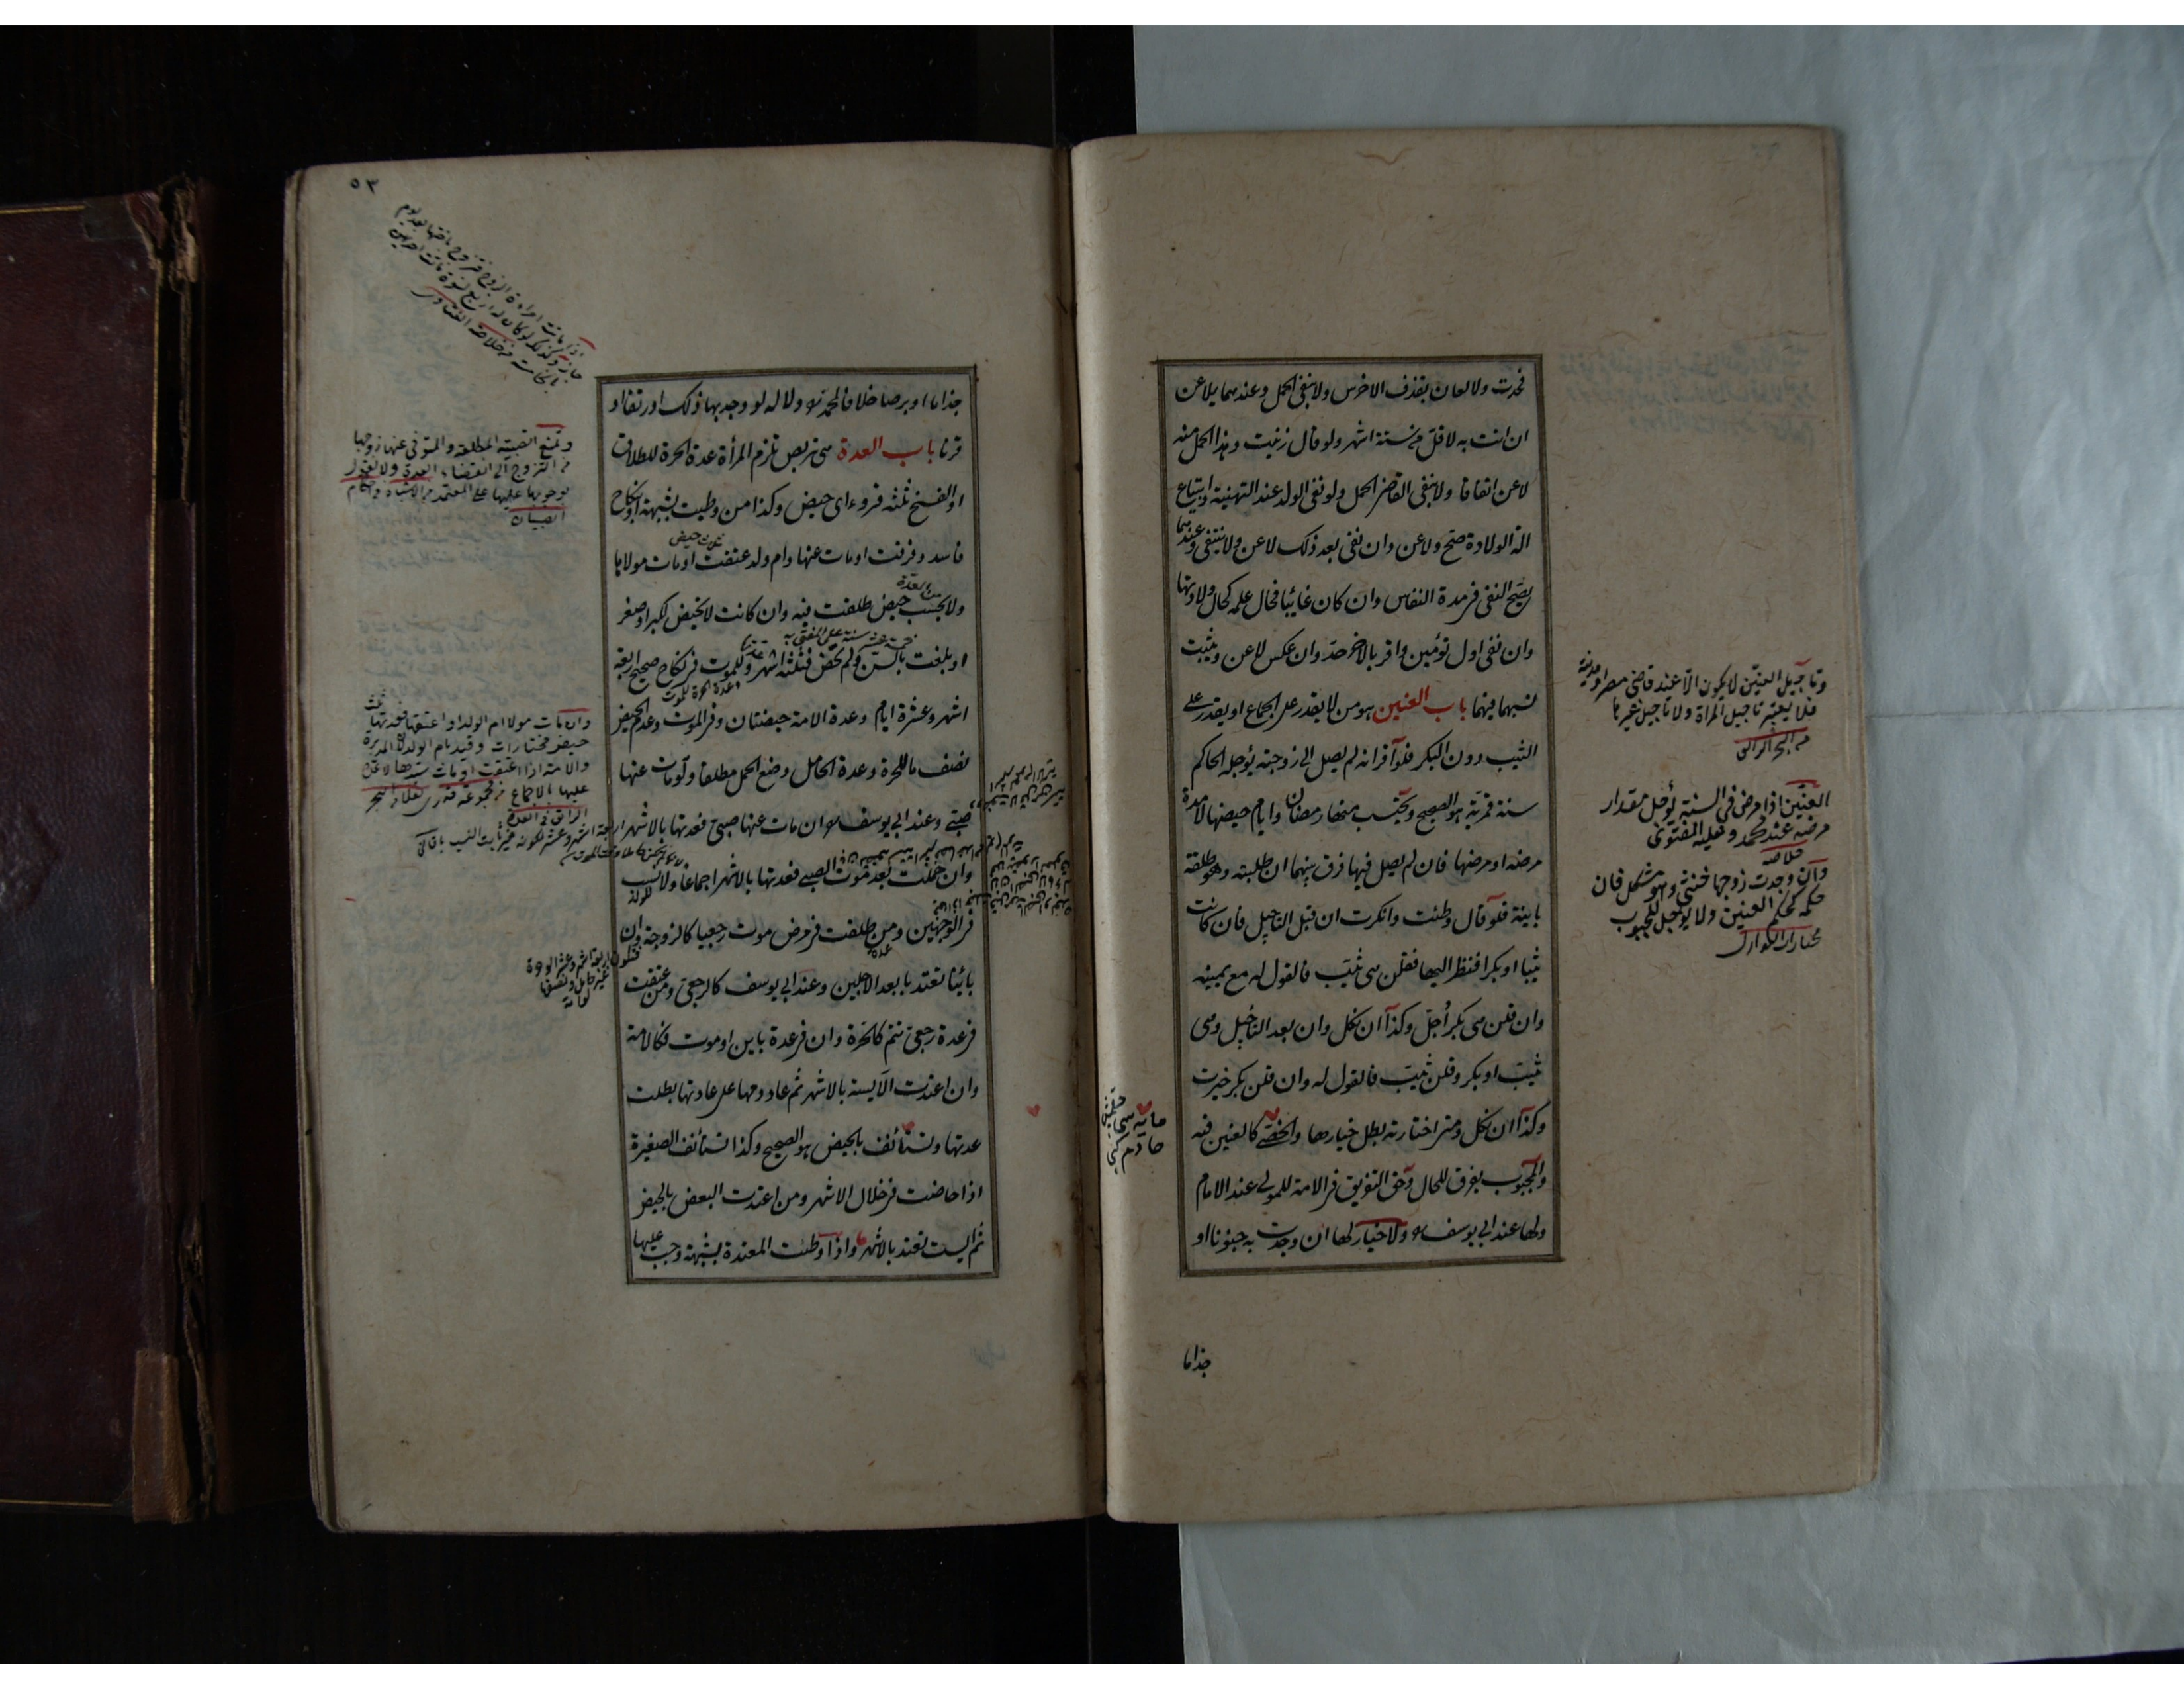 فحدت ولا لعان بقذف الاخرس ولا بنفى الحمل وعندهما يلاعن
ان اتت به لاقل من ستة اشهر ولو قال زنيت وهذا الحمل منه
لاعن اتفاقا ولا ينفى القاضى الحمل ولو نفى الولد عند التهنية او ابتياع
الة الولادة صح ولاعن وان نفى بعد ذلك لاعن ولا ينتفى وعندهما
يصح النفى فى مدة النفاس وان كان غائبا فحال علمه كحال ولادتها
وان نفى اول توئمين واقر بالاخر حد وان عكس لاعن ويثبت
نسبهما فيهما باب العنين هو من لا يقدر على الجماع او يقدر على
الثيب دون البكر فلو اقر انه لم يصل الى زوجته يؤجله الحاكم
سنة قمرية هو الصحيح ويحتسب منها رمضان وايام حيضها لا مدة
مرضه او مرضها فان لم يصل فيها فرق بينهما ان طلبته وهو طلقة
باينة فلو قال وطئت وانكرت ان قبل التاجيل فان كانت
ثيبا او بكرا فنظر اليها فقلن هى ثيب فالقول له مع يمينه
وان قلن هى بكر اجل وكذا ان نكل وان بعد التاجيل وهى
ثيب او بكر وقلن ثيب فالقول له وان قلن بكر خيرت
وكذا ان نكل ومتى اختارته بطل خيارها والخصى كالعنين فيه
والمجبوب يفرق للحال وحق التفريق فى الامة للمولى عند الامام
ولها عند ابى يوسف ولا خيار لها ان وجدت به جنونا او
جذاما
وتاجيل العنين لا يكون الا عند قاضى مصر او مدينة
فلا يعتبر تاجيل المراة ولا تاجيل غيرها
من البحر الرائق
العنين اذا مرض فى السنة يؤجل مقدار
مرضه عند محمد وعليه الفتوى
خلاصه
وان وجدت زوجها خنثى وهو مشكل فان
حكمه كحكم العنين ولا يؤجل المجبوب
مختارات النوازل
٥٣
جذاما او برصا خلافا لمحمد ولا له لو وجد بها ذلك او رتقا او
قرنا باب العدة هى تربص تلزم المرأة عدة الحرة للطلاق
او الفسخ ثلثة قروء اى حيض وكذا من وطيت بشبهة او نكاح
فاسد وفرقت او مات عنها وام ولد عتقت او مات مولاها
ثلاث حيض
ولا يحسب حيض طلقت فيه وان كانت لا تحيض لكبر او صغر
من العدة
او بلغت بالسن ولم تحض فثلثة اشهر وللموت فى نكاح صحيح اربعة
اشهر وعشرة ايام وعدة الامة حيضتان وفى الموت وعدم الحيض
نصف ما للحرة وعدة الحامل وضع الحمل مطلقا ولو مات عنها
صبى وعند ابى يوسف ان مات عنها صبى فعدتها بالاشهر
وان حملت بعد موت الصبى فعدتها بالاشهر اجماعا ولا نسب
فى الوجهين ومن طلقت فى مرض موت رجعيا كالزوجة وان
بائنا تعتد بابعد الاجلين وعند ابى يوسف كالرجعى ومن عتقت
فى عدة رجعى تتم كالحرة وان فى عدة باين او موت فكالامة
وان اعتدت الآيسة بالاشهر ثم عاد دمها على عادتها بطلت
عدتها وتستأنف بالحيض هو الصحيح وكذا تستأنف الصغيرة
اذا حاضت فى خلال الاشهر ومن اعتدت البعض بالحيض
ثم ايست تعتد بالاشهر واذا وطئت المعتدة بشبهة وجب عليها
وتمنع الصبية المطلقة والمتوفى عنها زوجها
من التزوج الى انقضاء العدة ولا نقول
بوجوبها عليها على المعتمد من الاشباه واحكام
الصبيان
وان مات مولا ام الولد او اعتقها فعدتها ثلث
حيض مختارات وقيد بام الولد لان المدبرة
والامة اذا اعتقت او مات سيدها لا عدة
عليها بالاجماع